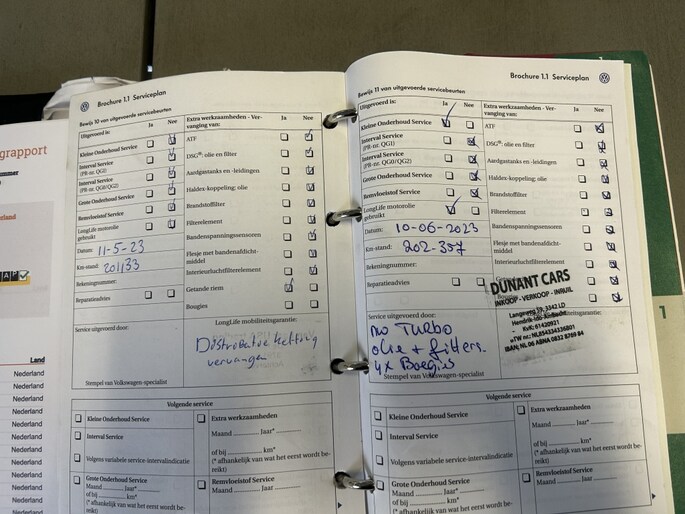 grapport
Land
Nederland
Nederland
Nederland
Nederland
Nederland
Nederland
Nederland
Nederland
Nederland
Brochure 1.1 Serviceplan
Bewijs 10 van uitgevoerde servicebeurten
Uitgevoerd is: Ja Nee
Kleine Onderhoud Service
Interval Service
(PR-nr. QG1)
Interval Service
(PR-nr. QG0/QG2)
Grote Onderhoud Service
Remvloeistof Service
LongLife motorolie
gebruikt
Datum: 11-5-23
Km-stand: 201133
Rekeningnummer:
Reparatieadvies
Extra werkzaamheden - Ver-
vanging van: Ja Nee
ATF
DSG®: olie en filter
Aardgastanks en -leidingen
Haldex-koppeling: olie
Brandstoffilter
Filterelement
Bandenspanningssensoren
Flesje met bandenafdicht-
middel
Interieurluchtfilterelement
Getande riem
Bougies
Service uitgevoerd door:
LongLife mobiliteitsgarantie:
Distributie ketting
vervangen
Stempel van Volkswagen-specialist
Volgende service
Kleine Onderhoud Service
Interval Service
Volgens variabele service-intervalindicatie
Grote Onderhoud Service
Maand Jaar*
of bij km*
(* afhankelijk van wat het eerst wordt be-
reikt)
Extra werkzaamheden
Maand Jaar*
of bij km*
(* afhankelijk van wat het eerst wordt be-
reikt)
Remvloeistof Service
Maand Jaar
Brochure 1.1 Serviceplan
Bewijs 11 van uitgevoerde servicebeurten
Uitgevoerd is: Ja Nee
Kleine Onderhoud Service
Interval Service
(PR-nr. QG1)
Interval Service
(PR-nr. QG0/QG2)
Grote Onderhoud Service
Remvloeistof Service
LongLife motorolie
gebruikt
Datum: 10-06-2023
Km-stand: 202-357
Rekeningnummer:
Reparatieadvies
Extra werkzaamheden - Ver-
vanging van: Ja Nee
ATF
DSG®: olie en filter
Aardgastanks en -leidingen
Haldex-koppeling: olie
Brandstoffilter
Filterelement
Bandenspanningssensoren
Flesje met bandenafdicht-
middel
Interieurluchtfilterelement
Getande
DUNANT CARS
INKOOP - VERKOOP - INRUIL
KvK: 61420921
Service uitgevoerd door:
TURBO
olie + filters.
4x Boegies
Stempel van Volkswagen-specialist
Volgende service
Kleine Onderhoud Service
Interval Service
Volgens variabele service-intervalindicatie
Grote Onderhoud Service
Maand Jaar*
of bij km*
(* afhankelijk van wat het eerst wordt be-
Extra werkzaamheden
Maand Jaar*
of bij km*
(* afhankelijk van wat het eerst wordt be-
reikt)
Remvloeistof Service
Maand Jaar
1